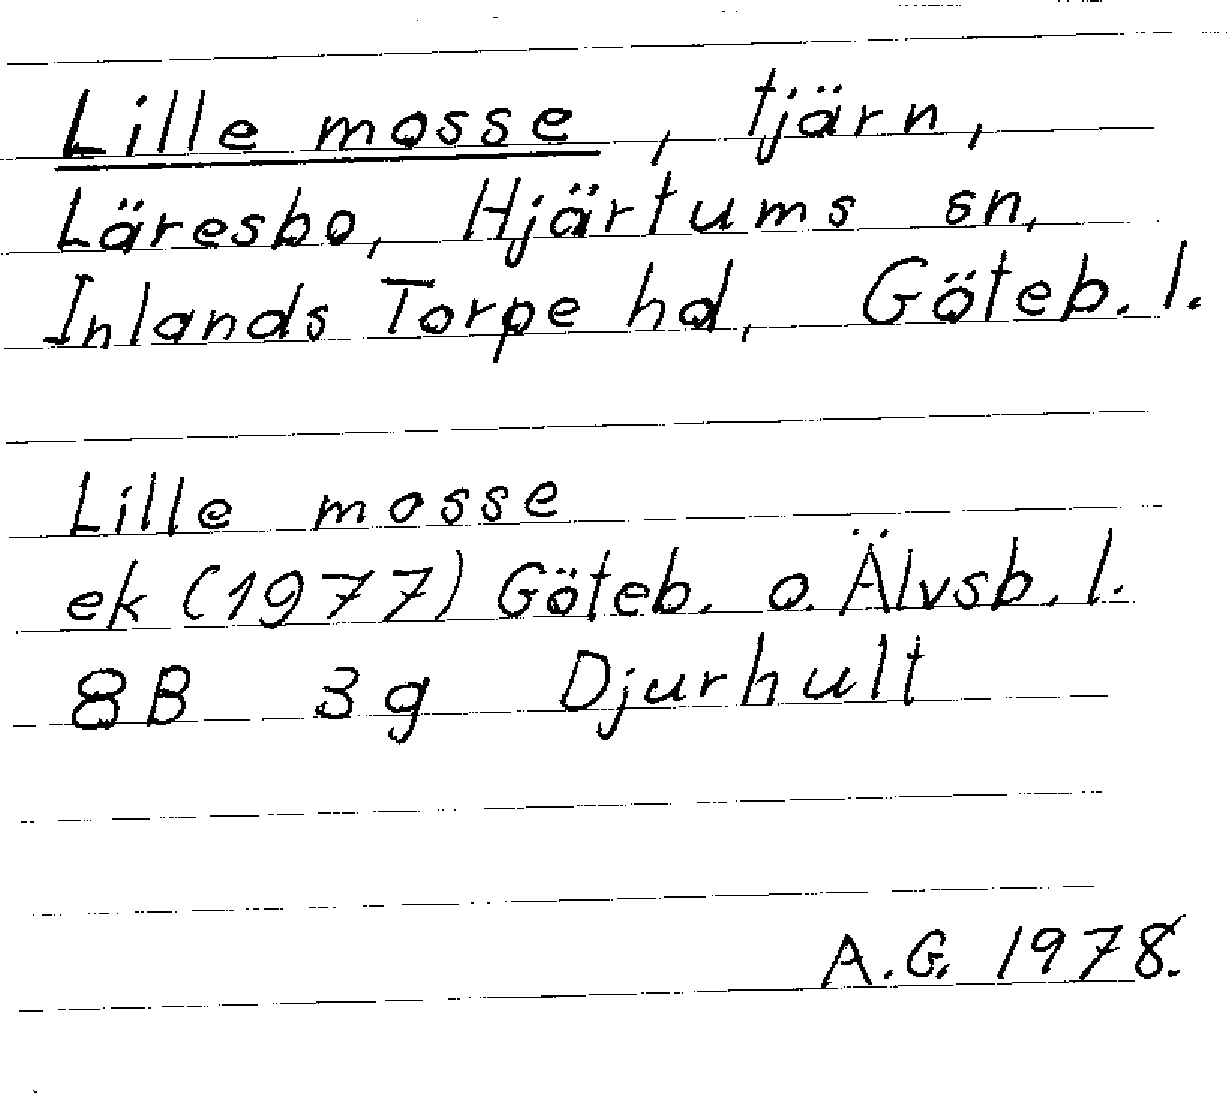 Lille mosse, tjärn,
Läresbo, Hjärtums sn,
Inlands Torpe hd, Göteb. l.
Lille mosse
ek (1977) Göteb. o. Älvsb. l.
8B 3g Djurhult
A.G. 1978.